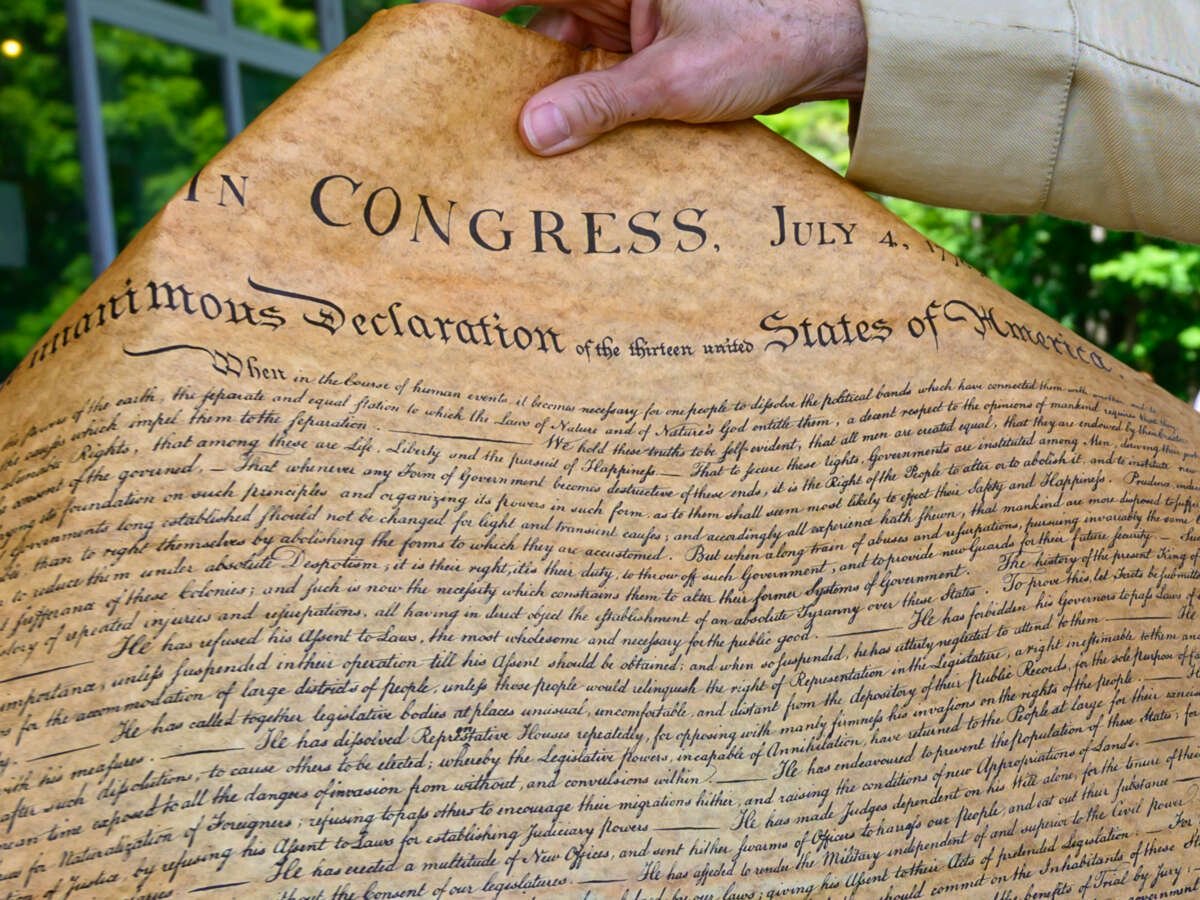 IN CONGRESS, JULY 4,
unanimous Declaration of the thirteen united States of America.
When in the Course of human events, it becomes necessary for one people to dissolve the political bands which have connected them with another, and to
the powers of the earth, the separate and equal station to which the Laws of Nature and of Nature's God entitle them, a decent respect to the opinions of mankind requires that they
the causes which impel them to the separation. — We hold these truths to be self-evident, that all men are created equal, that they are endowed by their Creator
Rights, that among these are Life, Liberty and the pursuit of Happiness.— That to secure these rights, Governments are instituted among Men, deriving their just
consent of the governed, — That whenever any Form of Government becomes destructive of these ends, it is the Right of the People to alter or to abolish it, and to institute new
its foundation on such principles and organizing its powers in such form, as to them shall seem most likely to effect their Safety and Happiness. Prudence, indeed
Governments long established should not be changed for light and transient causes; and accordingly all experience hath shewn, that mankind are more disposed to suffer
than to right themselves by abolishing the forms to which they are accustomed. But when a long train of abuses and usurpations, pursuing invariably the same
to reduce them under absolute Despotism, it is their right, it is their duty, to throw off such Government, and to provide new Guards for their future security.— Such
sufferance of these Colonies; and such is now the necessity which constrains them to alter their former Systems of Government. The history of the present King of
history of repeated injuries and usurpations, all having in direct object the establishment of an absolute Tyranny over these States. To prove this, let Facts be submitted
He has refused his Assent to Laws, the most wholesome and necessary for the public good. — He has forbidden his Governors to pass Laws of
importance, unless suspended in their operation till his Assent should be obtained; and when so suspended, he has utterly neglected to attend to them. — He
for the accommodation of large districts of people, unless those people would relinquish the right of Representation in the Legislature, a right inestimable to them and
He has called together legislative bodies at places unusual, uncomfortable, and distant from the depository of their Public Records, for the sole purpose of
with his measures. — He has dissolved Representative Houses repeatedly, for opposing with manly firmness his invasions on the rights of the people. —
after such dissolutions, to cause others to be elected; whereby the Legislative powers, incapable of Annihilation, have returned to the People at large for their
mean time exposed to all the dangers of invasion from without, and convulsions within. — He has endeavoured to prevent the population of these States; for
for Naturalization of Foreigners; refusing to pass others to encourage their migrations hither, and raising the conditions of new Appropriations of Lands. —
of Justice, by refusing his Assent to Laws for establishing Judiciary powers — He has made Judges dependent on his Will alone, for the tenure of their
He has erected a multitude of New Offices, and sent hither swarms of Officers to harrass our people, and eat out their substance —
without the Consent of our legislatures. — He has affected to render the Military independent of and superior to the Civil power
by our laws; giving his Assent to their Acts of pretended Legislation: — For
should commit on the Inhabitants of these
the benefits of Trial by Jury: